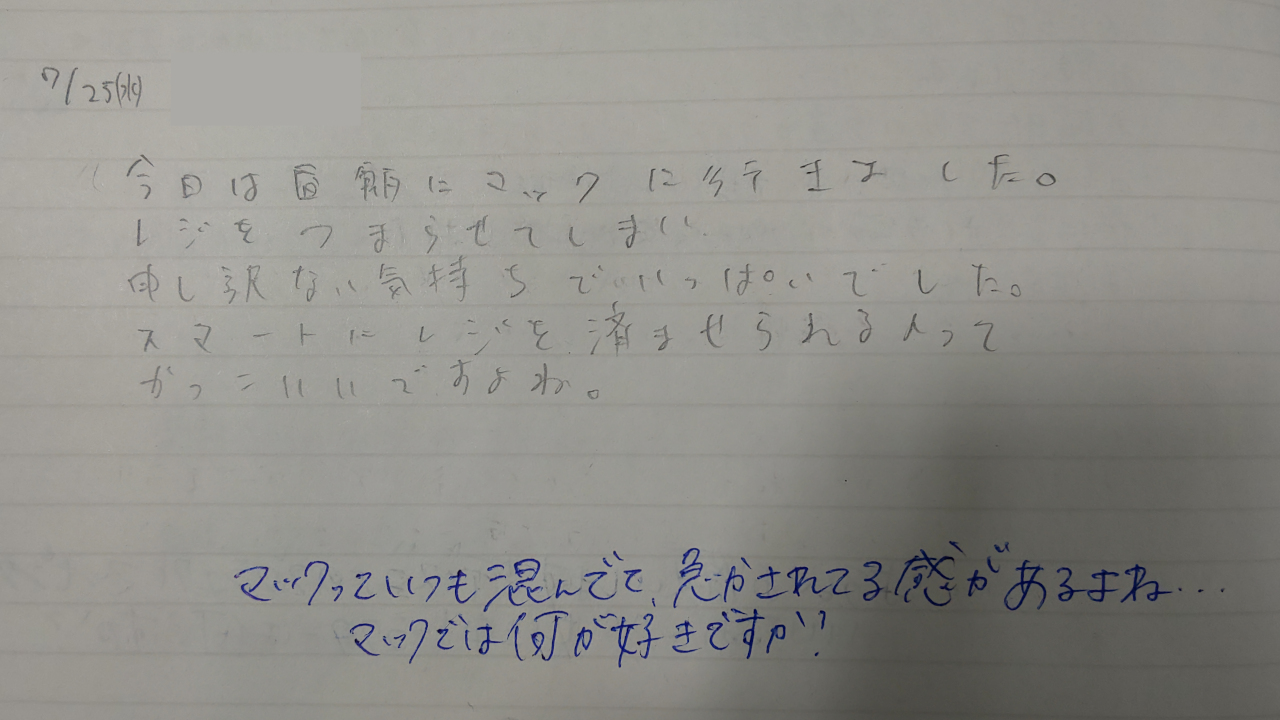 7/25(水)
今日は直前にマックに行きました。
レジをつまらせてしまい
申し訳ない気持ちでいっぱいでした。
スマートにレジを済ませられる人って
かっこいいですよね。
マックっていつも混んでて、急かされてる感があるよね…
マックでは何が好きですか?